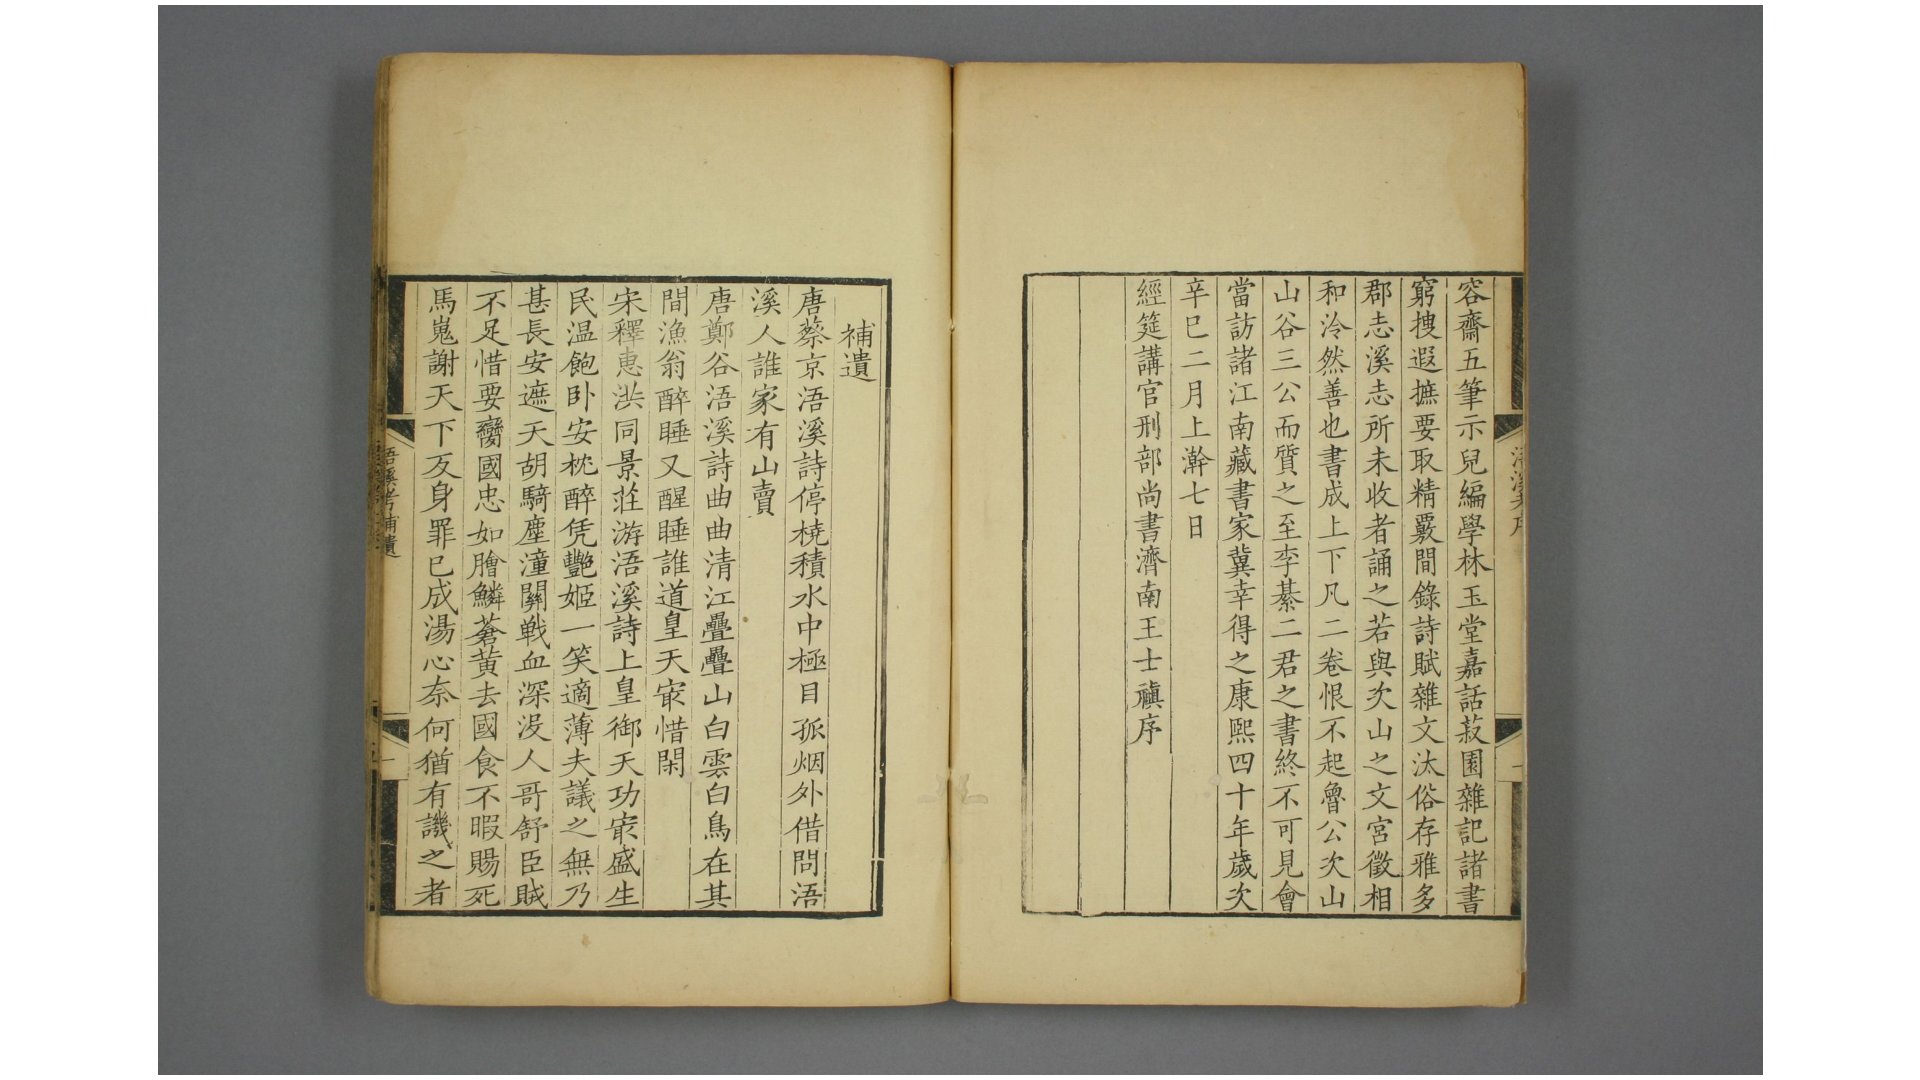 容齋五筆示兒編學林玉堂嘉話菽園雜記諸書
窮搜遐摭要取精覈間錄詩賦雜文汰俗存雅多
郡志溪志所未收者誦之若與次山之文宮徵相
和泠然善也書成上下凡二卷恨不起魯公次山
山谷三公而質之至李綦二君之書終不可見會
當訪諸江南藏書家冀幸得之康熙四十年歲次
辛巳二月上澣七日
經筵講官刑部尚書濟南王士禛序
補遺
唐蔡京浯溪詩停橈積水中極目孤烟外借問浯
溪人誰家有山賣
唐鄭谷浯溪詩曲曲清江疊疊山白雲白鳥在其
間漁翁醉睡又醒睡誰道皇天㝡惜閑
宋釋惠洪同景莊游浯溪詩上皇御天功㝡盛生
民温飽卧安枕醉凭豔姬一笑適薄夫議之無乃
甚長安遮天胡騎塵潼關戰血深没人哥舒臣賊
不足惜要臠國忠如膾鱗蒼黄去國食不暇賜死
馬嵬謝天下反身罪已成湯心奈何猶有譏之者
浯溪考補遺
一